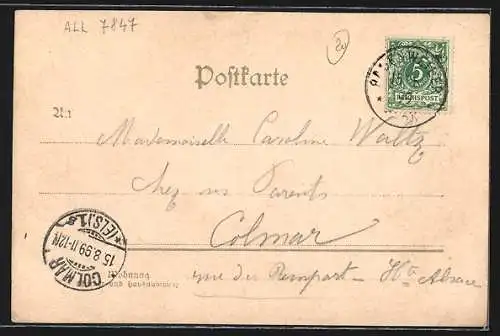 ALL 7847
20
Postkarte
5
REICHSPOST
An
Mademoiselle Caroline Waltz
chez ses Parents
Colmar
rue du Rempart - Hte Alsace
Wohnung
und Hausnummer
COLMAR (ELS) 1.a
15.8.99.11-12N.